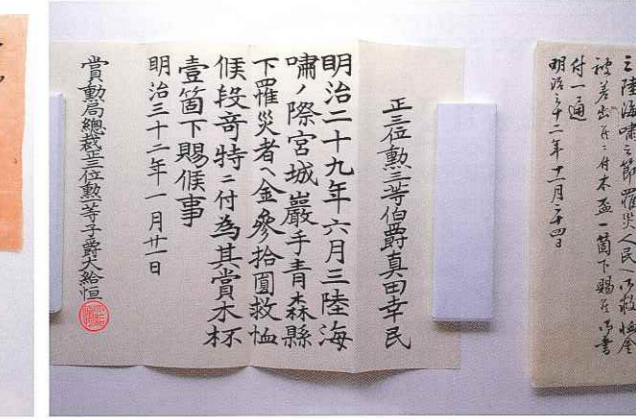 三陸海嘯之節罹災人民へ御救恤金
被差出候ニ付木盃一箇下賜候御書
付一通
明治三十二年十一月二十四日
正三位勲三等伯爵真田幸民
明治二十九年六月三陸海
嘯ノ際宮城巖手青森縣
下罹災者ヘ金參拾圓救恤
候段奇特ニ付為其賞木杯
壹箇下賜候事
明治三十二年一月廿一日
賞勳局總裁正三位勲一等子爵大給恒